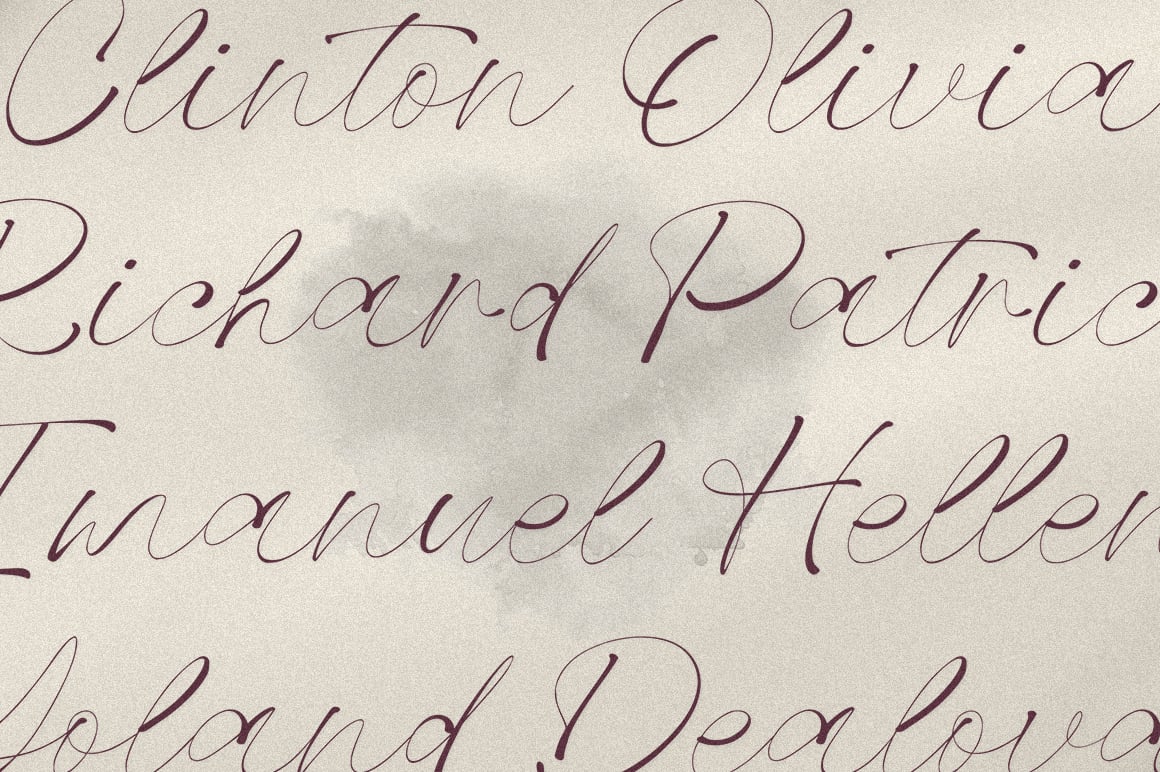 Clinton Olivia
Richard Patric
Imanuel Hellen
Dealova